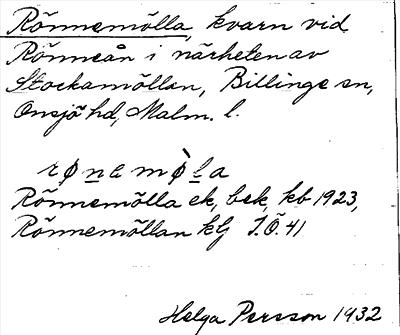 Rönnemölla, kvarn vid
Rönneån i närheten av
Stockamöllan, Billinge sn,
Onsjö hd, Malm. l.
rø̀na mø̀la
Rönnemölla ek, bek, kb 1923,
Rönnemöllan klj J.Ö. 41
Helga Persson 1932